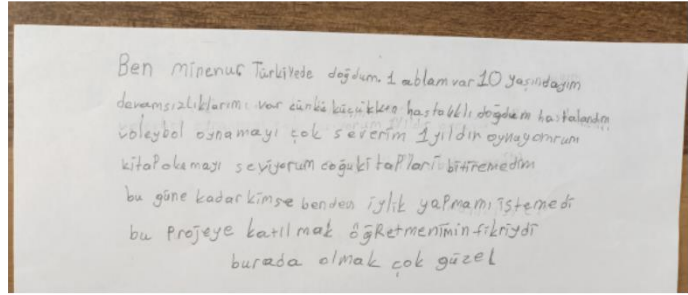 Ben minenur Türkiyede doğdum. 1 ablam var 10 yaşındayım
devamsızlıklarımı var çünkü küçükken hastalıklı doğdum hastalandım
voleybol oynamayi çok severim 1 yıldın oynayomrum
kitap okumayı seviyorum çoğu kitapları bitiremedim
bu güne kadar kimse benden iylik yapmamı istemedi
bu projeye katılmak öğRetmenimin fikriydi
burada olmak çok güzel